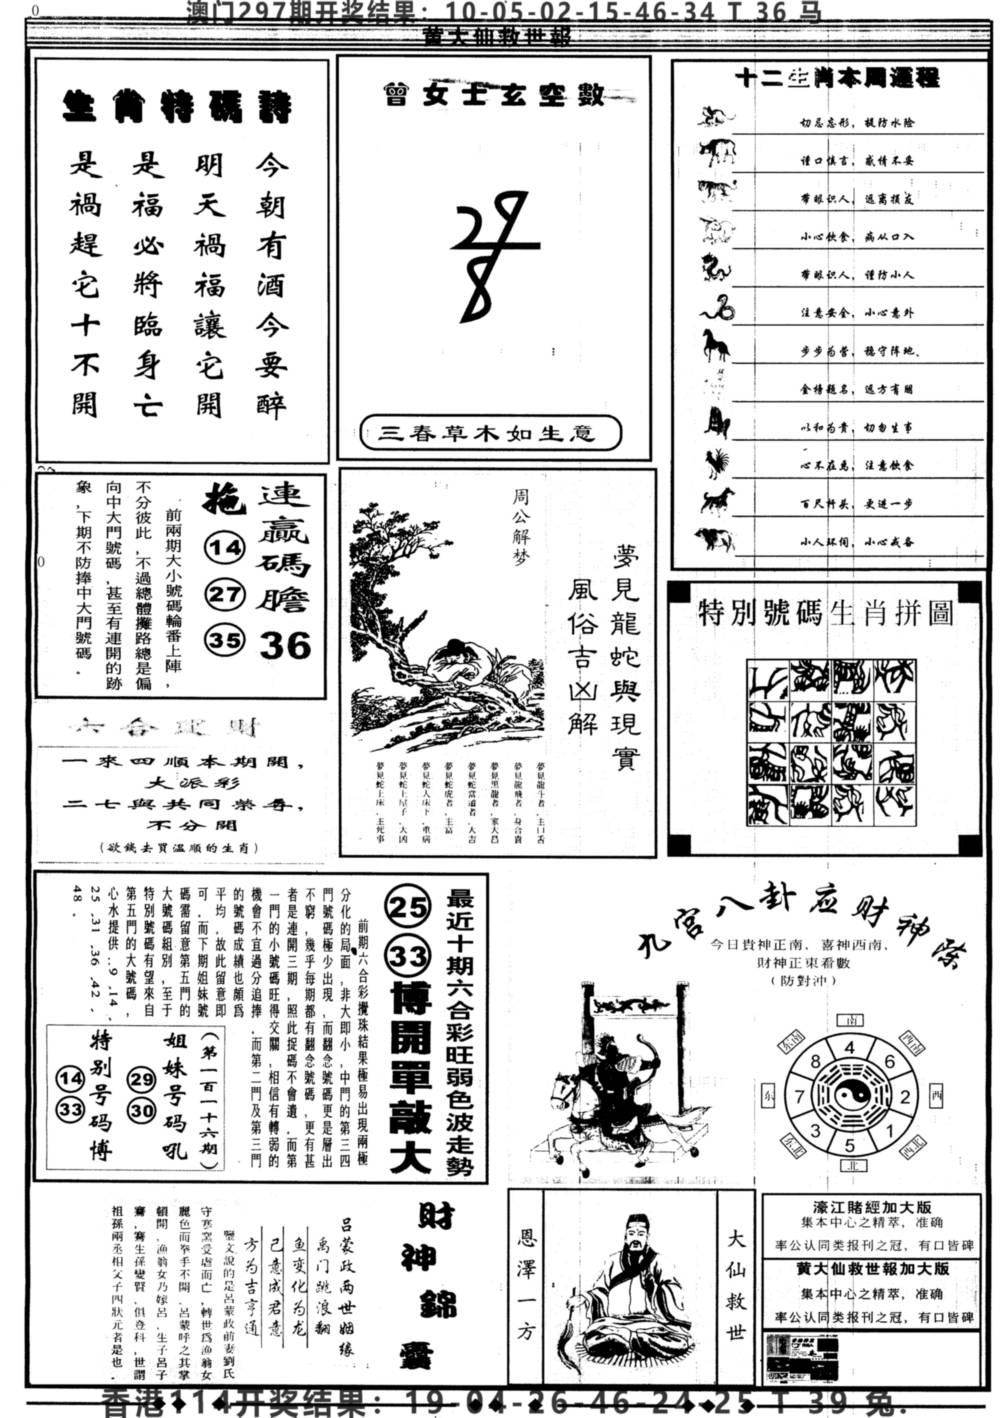 澳门297期开奖结果：10-05-02-15-46-34 T 36 马
黄大仙救世報
生肖特碼詩
今朝有酒今要醉
明天禍福讓它開
是福必將臨身亡
是禍趕它十不開
曾女士玄空數
29
8
三春草木如生意
十二生肖本周運程
切忌忘形，提防水险
谨口慎言，感情不妥
带眼识人，远离损友
小心饮食，病从口入
带眼识人，谨防小人
注意安全，小心意外
步步为营，稳守阵地、
金榜题名，远方有朋
以和为贵，切勿生事
心不在焉，注意饮食
百尺杆头，更进一步
小人环伺，小心戒备
連贏碼膽 36
拖
14
27
35
前兩期大小號碼輪番上陣，
不分彼此，不過總體攤路總是偏
向中大門號碼，甚至有連開的跡
象，下期不防捧中大門號碼．
周公解梦
夢見龍蛇與現實
風俗吉凶解
夢見龍斗者，主口舌
夢見龍飛者，身合貴
夢見黑龍者，家大昌
夢見蛇當道者，大吉
夢見蛇虎者，主富
夢見蛇入床下，重病
夢見蛇上屋子，大凶
夢見蛇上床，主死事
特別號碼生肖拼圖
一來四順本期開，
大派彩
二七與共同榮尊，
不分開
（欲錢去買溫順的生肖）
最近十期六合彩旺弱色波走勢
25
33
博開單敲大
前期六合彩攪珠結果極易出現兩極
分化的局面，非大即小，中門的第三四
門號碼極少出現，而翻念號碼更是層出
不窮，幾乎每期都有翻念號碼，更有甚
者是連開三期，照此捉碼不會遺，而第
一門的小號碼旺得交關，相信有轉弱的
機會不宜過分追捧，而第二門及第三門
的號碼成績也頗爲
平均，故此留意即
可，而下期姐妹號
碼需留意第五門的
大號碼組別，至于
特別號碼有望來自
第五門的大號碼，
心水提供：9.14.
25.31.36.42.
48．
（第一百一十六期）
姐妹号码吼
29
30
特别号码博
14
33
九宮八卦应财神陈
今日貴神正南，喜神西南，
財神正東看數
（防對沖）
南
东南
西南
东
西
东北
西北
北
4
6
2
1
5
3
7
8
財神錦囊
吕蒙政两世姻缘
禹门跳浪翻
鱼变化为龙
己意成君意
方为吉亨通
鑒文說的是呂蒙政前妻劉氏
守寒窯受虐而亡，轉世爲漁翁女
麗色而拳手不開，呂蒙呼之其掌
頓開，漁翁女乃嫁呂，生子呂子
騫，騫生孫變賢，俱登科，世謂
祖孫兩丞相父子四狀元者是也．
恩澤一方
大仙救世
濠江賭經加大版
集本中心之精萃，准确
率公认同类报刊之冠，有口皆碑
黄大仙救世報加大版
集本中心之精萃，准确
率公认同类报刊之冠，有口皆碑
香港114开奖结果：19-04-26-46-24-25 T 39 兔.